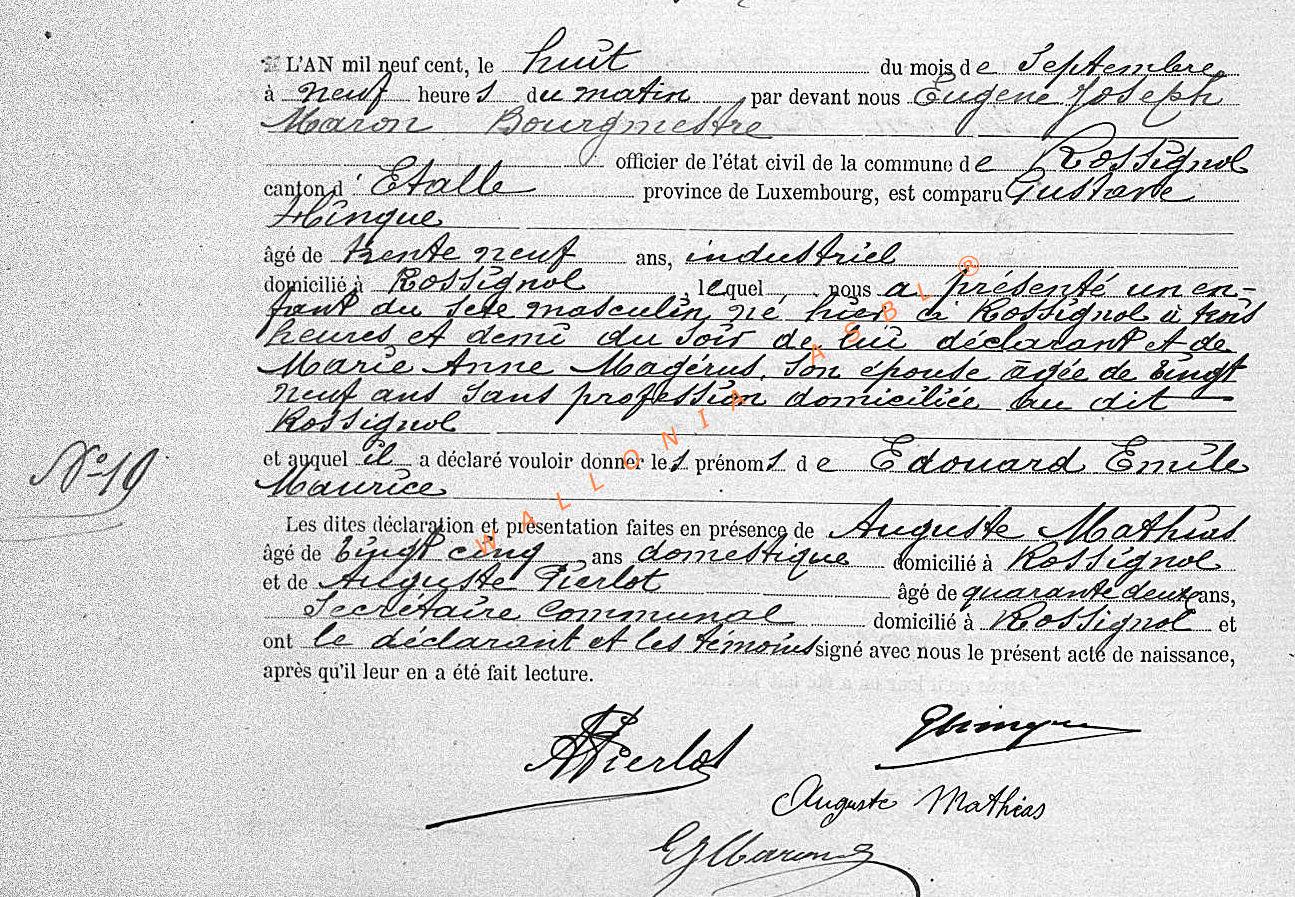 L'AN mil neuf cent, le huit du mois de Septembre
à neuf heures du matin par devant nous Eugène Joseph
Maron Bourgmestre
officier de l'état civil de la commune de Rossignol
canton d'Etalle province de Luxembourg, est comparu Gustave
Hinque
âgé de trente neuf ans, industriel
domicilié à Rossignol, lequel nous a présenté un en-
fant du sexe masculin, né hier à Rossignol à trois
heures et demi du soir de lui déclarant et de
Marie Anne Magérus, son épouse âgée de vingt
neuf ans sans profession domiciliée au dit
Rossignol
et auquel il a déclaré vouloir donner les prénoms de Edouard Emile
Maurice
N° 19
Les dites déclaration et présentation faites en présence de Auguste Mathias
âgé de vingt cinq ans domestique domicilié à Rossignol
et de Auguste Pierlot âgé de quarante deux ans,
Secrétaire communal domicilié à Rossignol et
ont le déclarant et les témoins signé avec nous le présent acte de naissance,
après qu'il leur en a été fait lecture.
APierlot GHinque
Auguste Mathias
EJMaron
WALLONIA ASBL ®